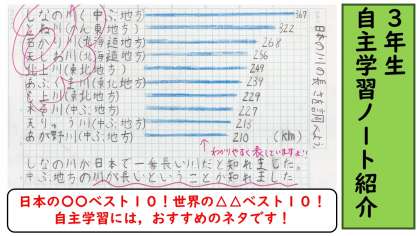 3年生
自主学習ノート紹介
日本の川の長さを調べよう
しなの川(中ぶ地方) 367
とね川(かん東地方) 322
石かり川(北海道地方) 268
天しお川(北海道地方) 256
北上川(東北地方) 249
あぶくま川(東北地方) 239
も上川(東北地方) 229
木そ川(中ぶ地方) 227
天りゅう川(中ぶ地方) 213
あが野川(中ぶ地方) 210 (km)
わかりやすく表していますよ!
しなの川が日本で一番長い川だと知れました。
中ぶ地方の川が長いということが知れました。
日本の〇〇ベスト10!世界の△△ベスト10!
自主学習には,おすすめのネタです!